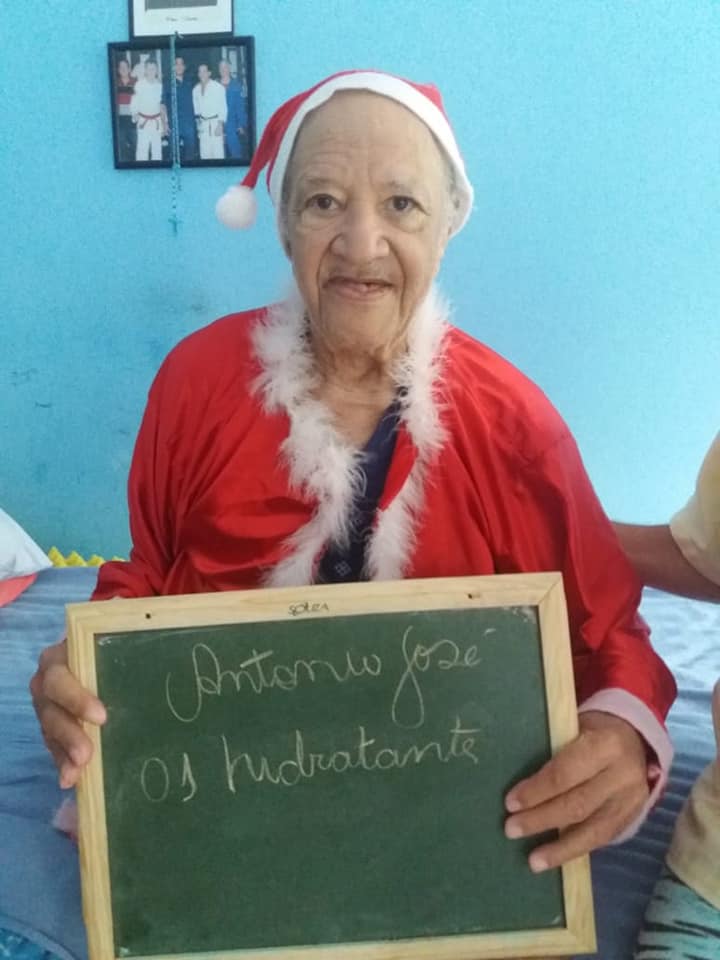 Antonio José
01 hidratante